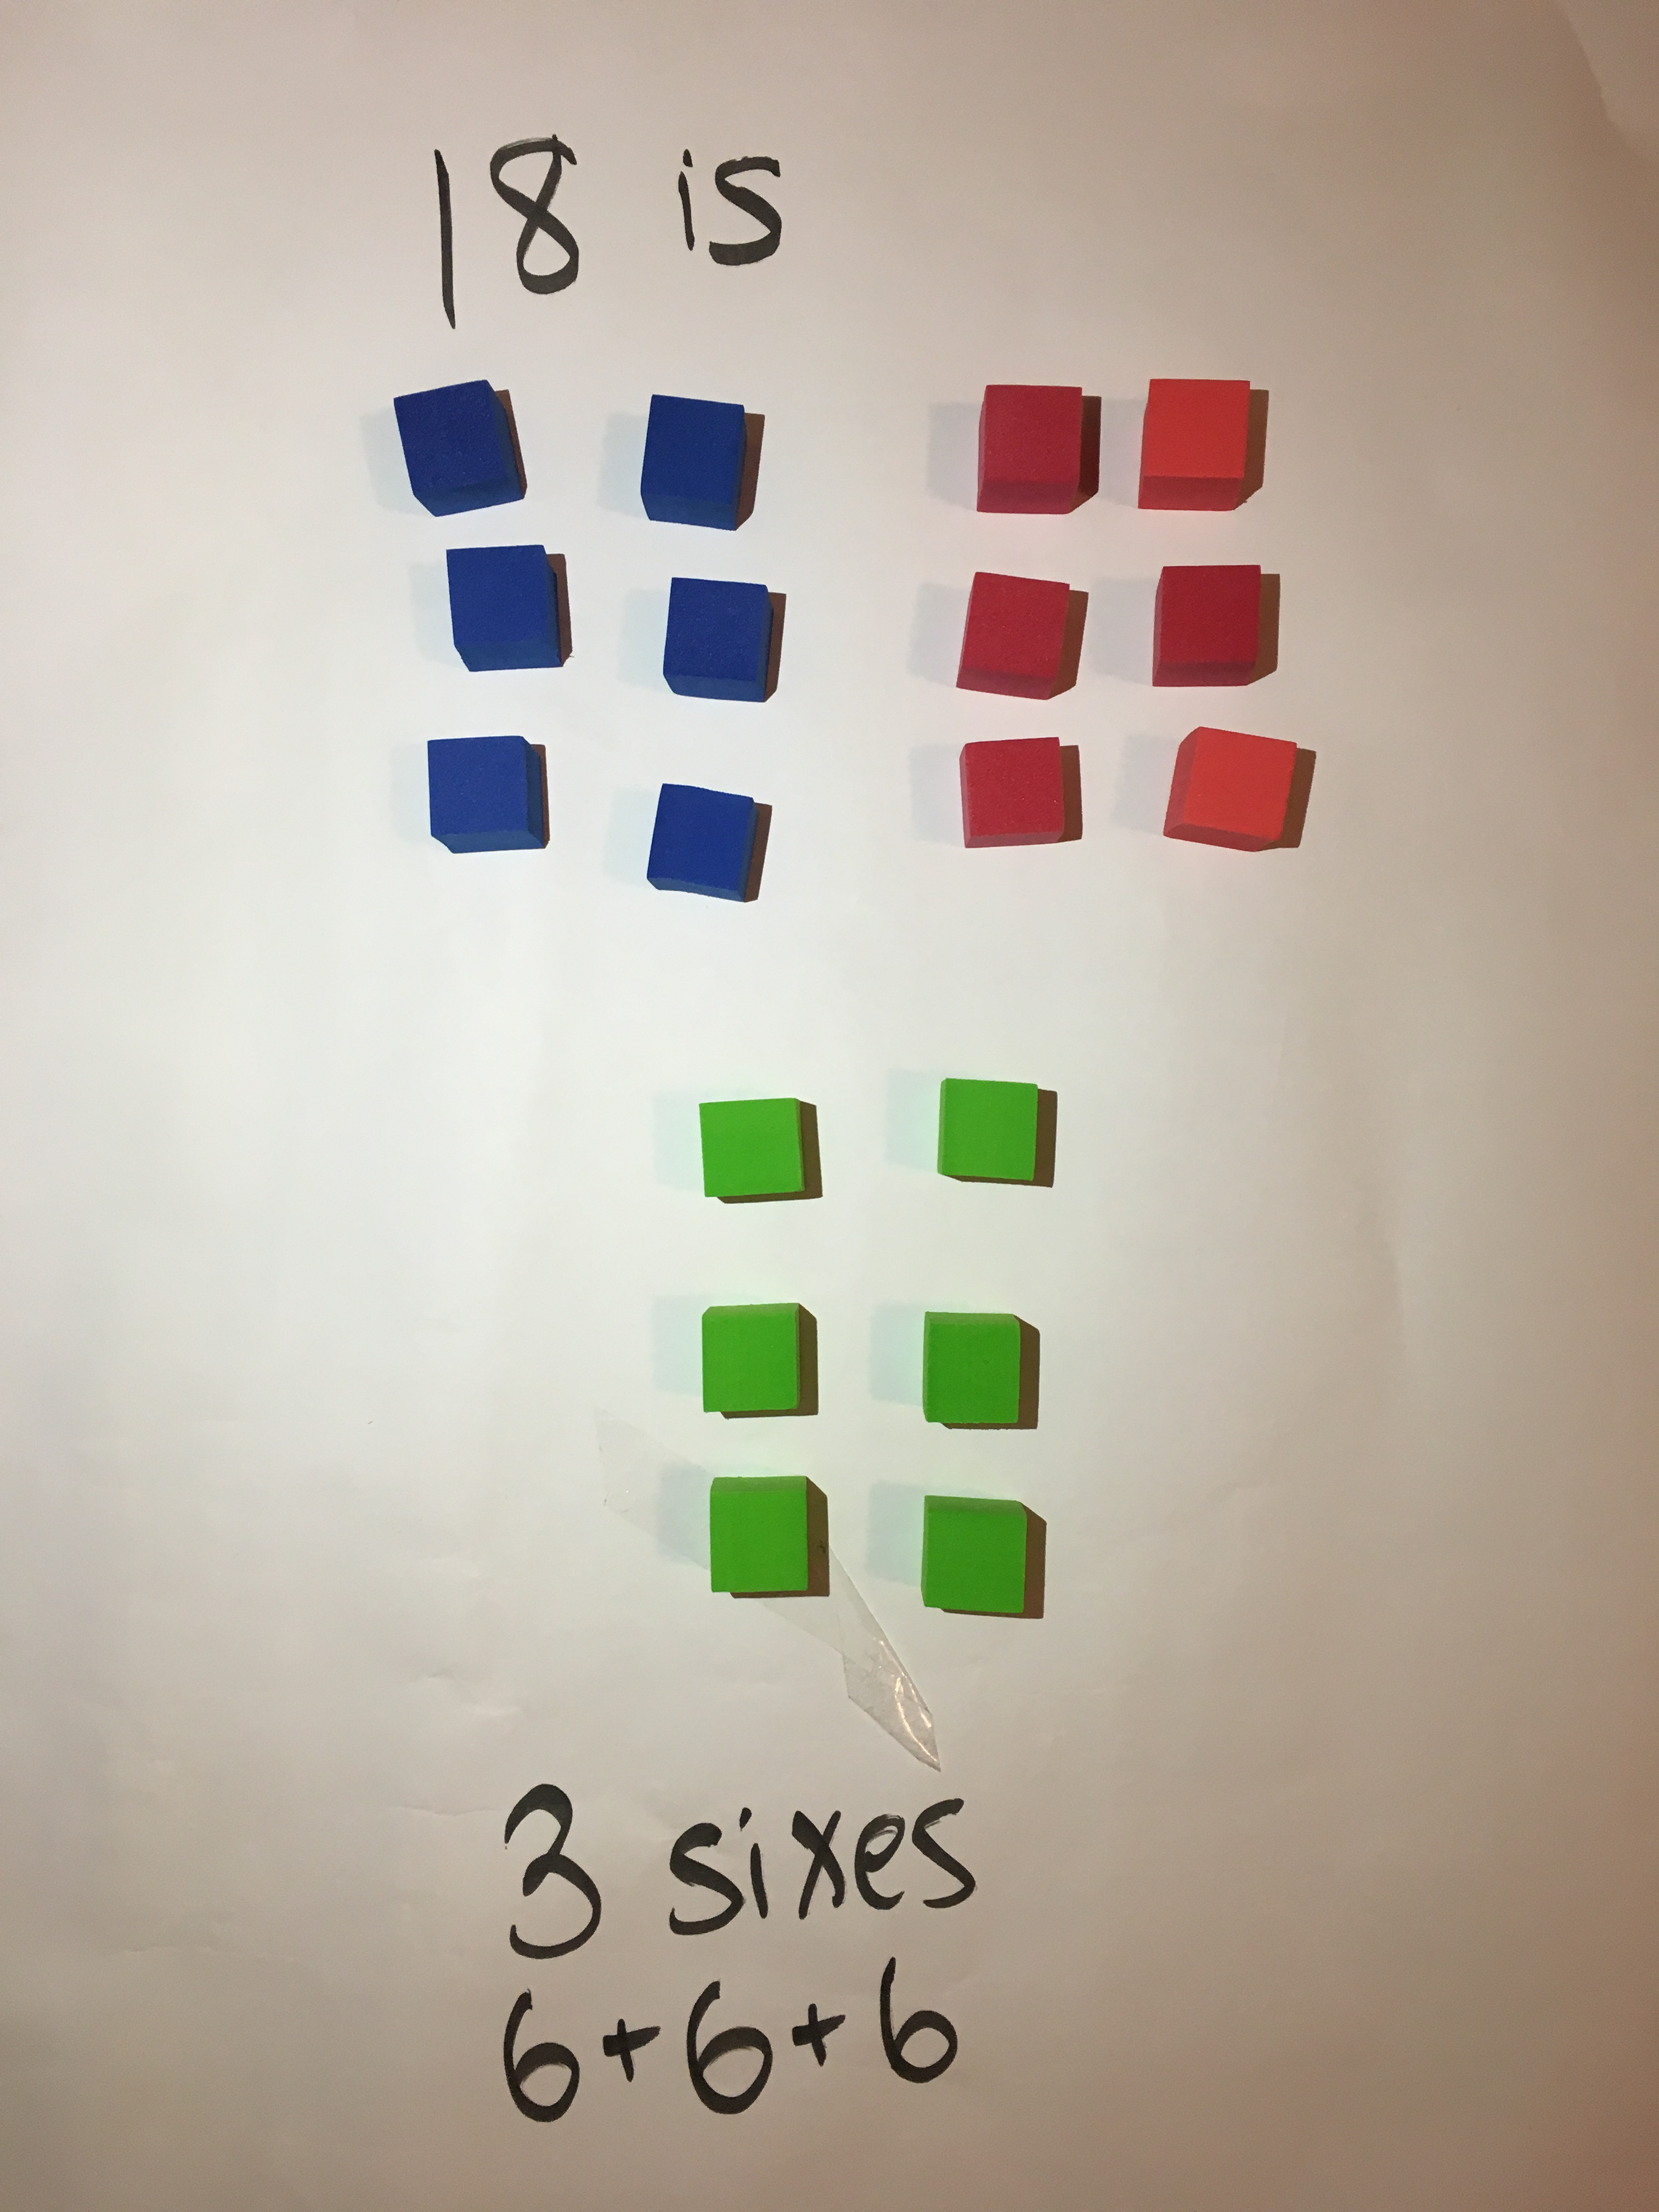 18 is
3 sixes
6+6+6